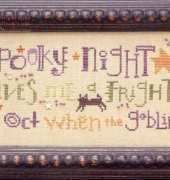 pooky night
ves me a fright
oct when the goblin